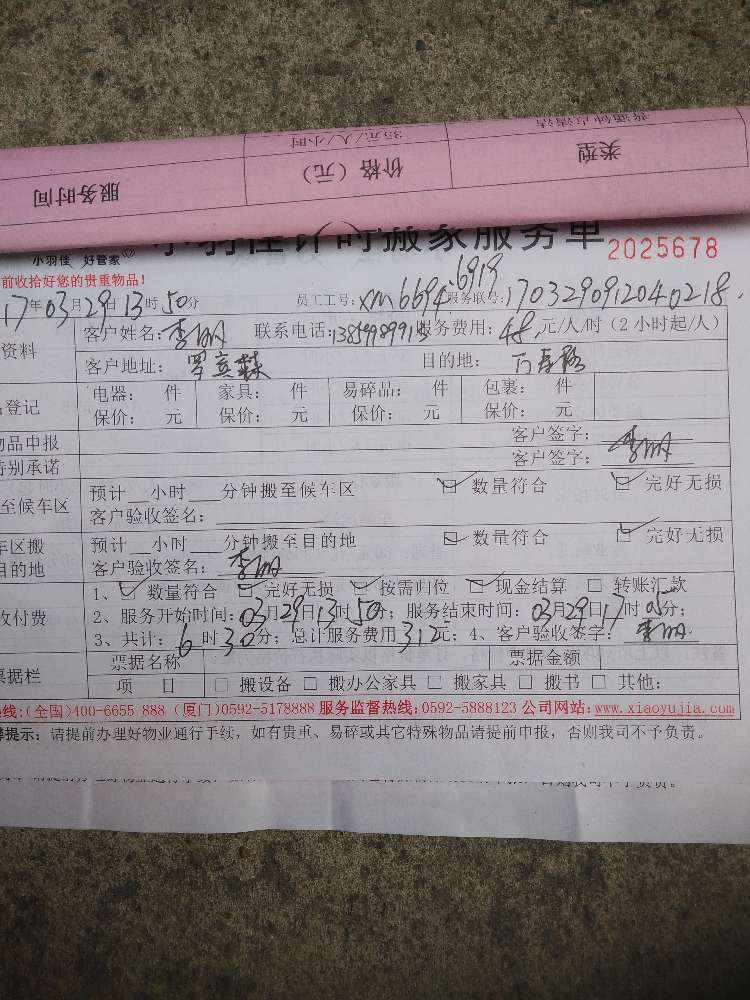 普通钟点清洁 35元/人/小时
类型 价格（元） 服务时间
小羽佳 好管家 小羽佳计时搬家服务单 2025678
前收拾好您的贵重物品！
17年03月29日13时50分 员工工号：XM6694.6919 服务联号：1703290912040218
资料 客户姓名： 联系电话： 服务费用：48元/人/时（2小时起/人）
客户地址：罗宾森 目的地：万寿路
登记 电器： 件 家具： 件 易碎品： 件 包裹： 件
保价： 元 保价： 元 保价： 元 保价： 元
物品申报 客户签字：
特别承诺 客户签字：
至候车区 预计__小时___分钟搬至候车区 ☑ 数量符合 ☑ 完好无损
客户验收签名：
车区搬 预计__小时___分钟搬至目的地 ☑ 数量符合 ☑ 完好无损
目的地 客户验收签名：
1、☑ 数量符合 ☑ 完好无损 ☑ 按需归位 ☑ 现金结算 □ 转账汇款
收付费 2、服务开始时间：03月29日13时50分；服务结束时间：03月29日17时05分；
3、共计：6时30分；总计服务费用312元；4、客户验收签字：
票据栏 票据名称 票据金额
项 目 □ 搬设备 □ 搬办公家具 □ 搬家具 □ 搬书 □ 其他：
热线：(全国)400-6655 888 (厦门)0592-5178888 服务监督热线：0592-5888123 公司网站：www.xiaoyujia.com
提示：请提前办理好物业通行手续，如有贵重、易碎或其它特殊物品请提前申报，否则我司不予负责。